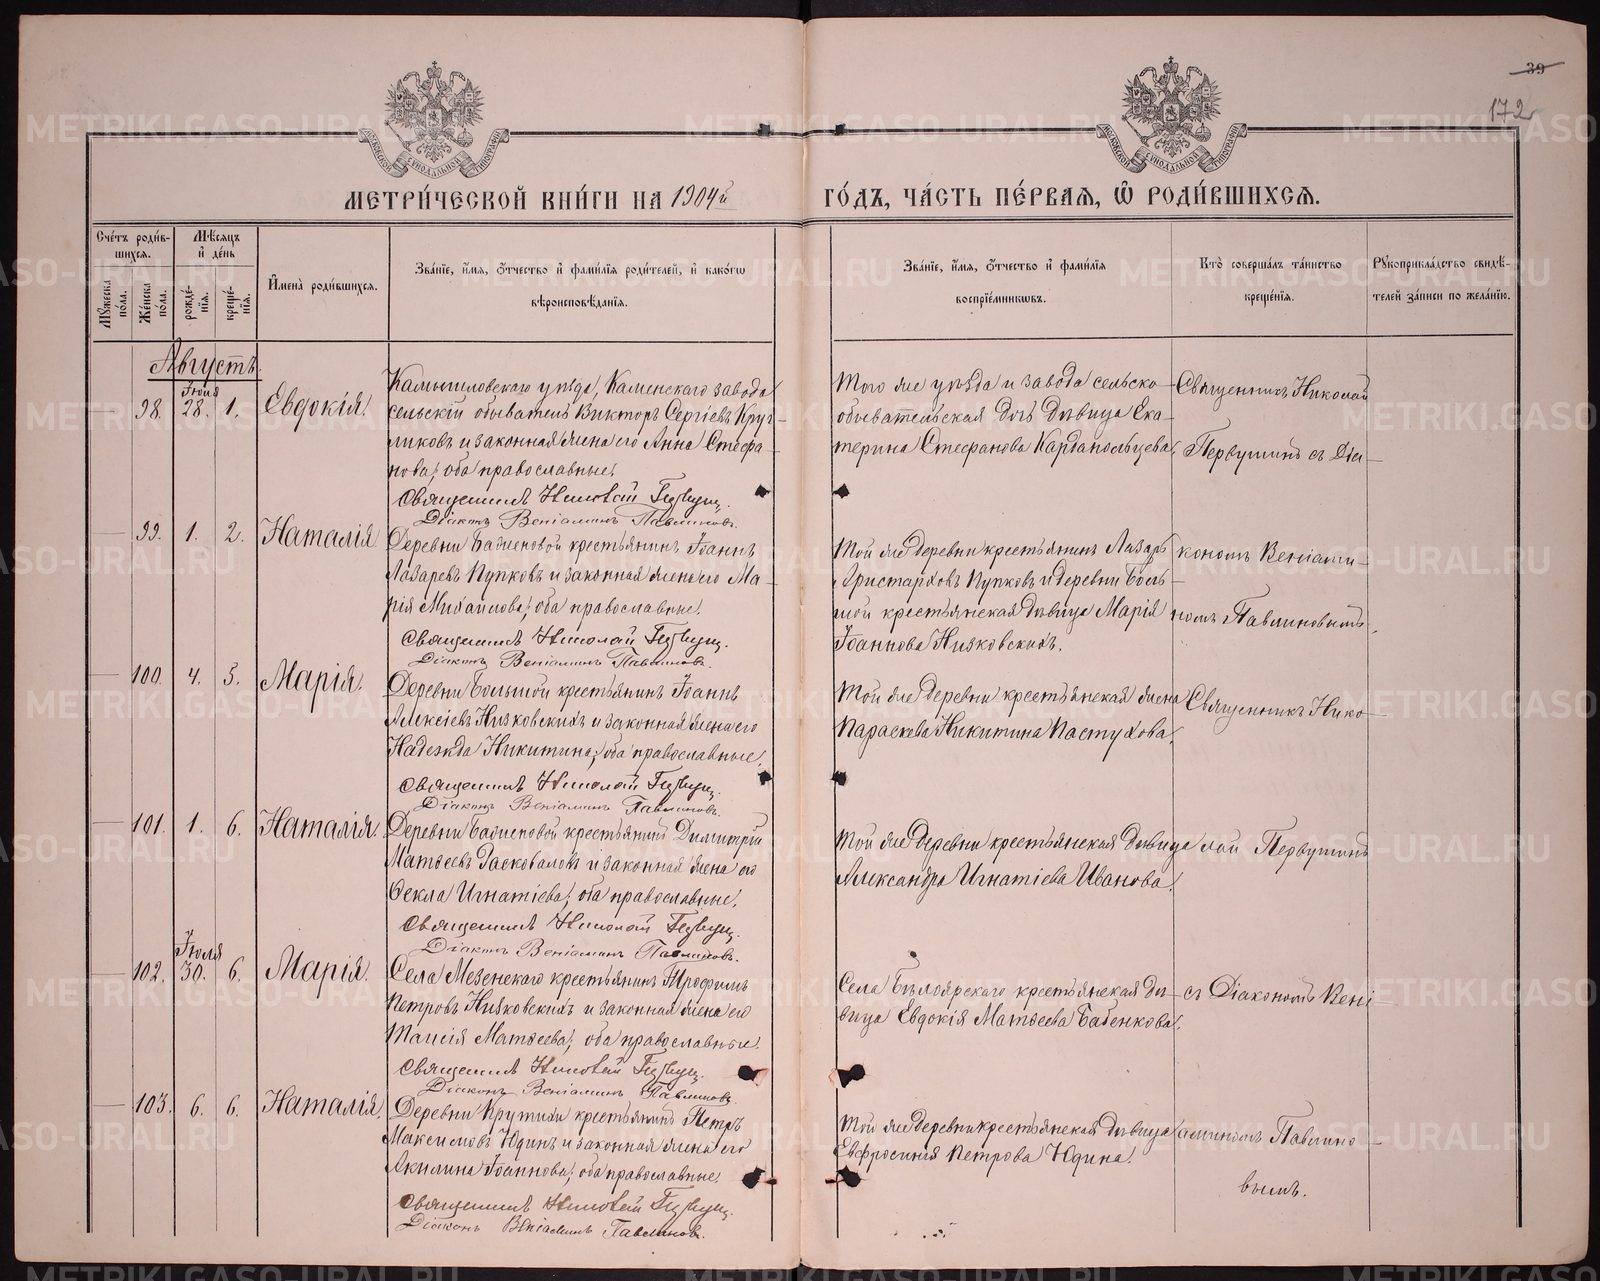 39
172
МОСКОВСКОЙ СѴНОДАЛЬНОЙ ТИПОГРАФІИ
МОСКОВСКОЙ СѴНОДАЛЬНОЙ ТИПОГРАФІИ
МЕТРИ́ЧЕСКОЙ КНИ́ГИ НА 1904й ГО́ДЪ, ЧА́СТЬ ПЕ́РВАЯ, Ѡ РОДИ́ВШИХСЯ.
Сче́тъ роди́в-
шихся.
Мꙋ́жеска по́ла.
Же́нска по́ла.
Мѣ́сяцъ и де́нь
рожде́нїя.
креще́нїя.
Имена̀ роди́вшихся.
Зва́нїе, и́мя, о́тчество и фами́лїя роди́телей, и како́гѡ
вѣроисповѣ́данїя.
Зва́нїе, и́мя, о́тчество и фами́лїя
воспрїе́мникѡвъ.
Кто̀ соверша́лъ та́инство
креще́нїя.
Рꙋкоприкла́дство свидѣ́-
телей за́писи по жела́нїю.
Августъ.
98. Іюля 28. 1. Евдокія.
Камышловскаго уѣзда, Каменскаго завода
сельскій обыватель Викторъ Сергіевъ Круг-
ликовъ и законная жена его Анна Стефа-
нова; оба православные.
Священникъ Николай Первуш.
Діаконъ Веніаминъ Павлиновъ.
Того же уѣзда и завода сельско-
обывательская дочь дѣвица Ека-
терина Стефанова Кардапольцева.
Священникъ Николай
Первушинъ съ Діа-
99. 1. 2. Наталія
Деревни Бабиеновой крестьянинъ Іоаннъ
Лазаревъ Пупковъ и законная жена его Ма-
рія Михаилова; оба православные.
Священникъ Николай Первуш.
Діаконъ Веніаминъ Павлиновъ.
Той же деревни крестьянинъ Лазарь
Аристарховъ Пупковъ и деревни Боль-
шой крестьянская дѣвица Марія
Іоаннова Низковскихъ.
кономъ Веніами-
номъ Павлиновымъ.
100. 4. 5. Марія.
Деревни Большой крестьянинъ Іоаннъ
Алексіевъ Низковскихъ и законная жена его
Надежда Никитина; оба православные.
Священникъ Николай Первуш.
Діаконъ Веніаминъ Павлиновъ.
Той же деревни крестьянская жена
Параскева Никитина Пастухова.
Священникъ Нико-
101. 1. 6. Наталія.
Деревни Бабиеновой крестьянинъ Димитрій
Матѳеевъ Раскобаловъ и законная жена его
Ѳекла Игнатіева; оба православные.
Священникъ Николай Первуш.
Діаконъ Веніаминъ Павлиновъ.
Той же деревни крестьянская дѣвица
Александра Игнатіева Иванова.
лай Первушинъ
102. Іюля 30. 6. Марія.
Села Мезенскаго крестьянинъ Трофимъ
Петровъ Низковскихъ и законная жена его
Таисія Матѳеева; оба православные.
Священникъ Николай Первуш.
Діаконъ Веніаминъ Павлиновъ.
Села Бѣлоярскаго крестьянская дѣ-
вица Евдокія Матѳеева Бабенкова.
съ Діакономъ Вені-
103. 6. 6. Наталія.
Деревни Крутихи крестьянинъ Петръ
Максимовъ Юдинъ и законная жена его
Акилина Іоаннова; оба православные.
Священникъ Николай Первуш.
Діаконъ Веніаминъ Павлиновъ.
Той же деревни крестьянская дѣвица
Евфросинія Петрова Юдина.
аминомъ Павлино-
вымъ.